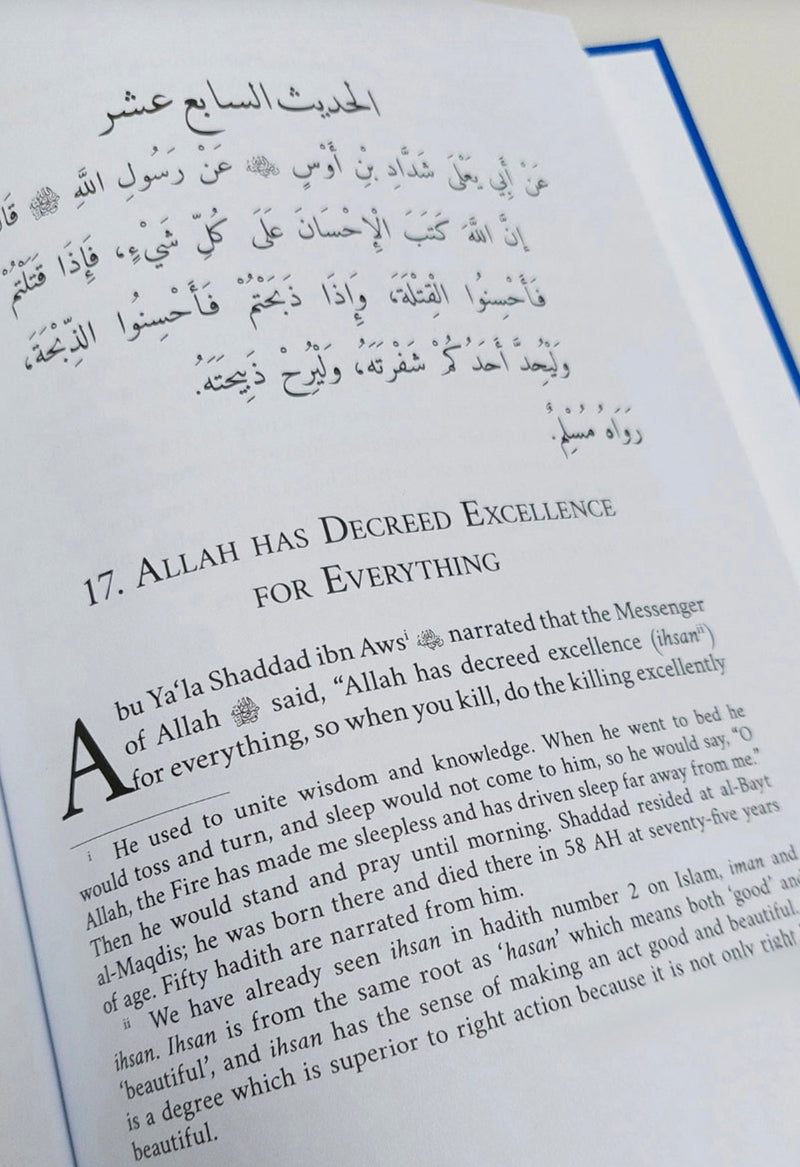 الحديث السابع عشر
عَنْ أَبِي يَعْلَى شَدَّادِ بْنِ أَوْسٍ ﷺ عَنْ رَسُولِ اللَّهِ ﷺ
إِنَّ اللَّهَ كَتَبَ الْإِحْسَانَ عَلَى كُلِّ شَيْءٍ، فَإِذَا قَتَلْتُمْ
فَأَحْسِنُوا الْقِتْلَةَ، وَإِذَا ذَبَحْتُمْ فَأَحْسِنُوا الذِّبْحَةَ،
وَلْيُحِدَّ أَحَدُكُمْ شَفْرَتَهُ، وَلْيُرِحْ ذَبِيحَتَهُ.
رَوَاهُ مُسْلِمٌ.
17. ALLAH HAS DECREED EXCELLENCE
FOR EVERYTHING
Abu Ya‘la Shaddad ibn Awsⁱ narrated that the Messenger
of Allah ﷺ said, “Allah has decreed excellence (ihsanⁱⁱ)
for everything, so when you kill, do the killing excellently
ⁱ He used to unite wisdom and knowledge. When he went to bed he
would toss and turn, and sleep would not come to him, so he would say, “O
Allah, the Fire has made me sleepless and has driven sleep far away from me.”
Then he would stand and pray until morning. Shaddad resided at al-Bayt
al-Maqdis; he was born there and died there in 58 AH at seventy-five years
of age. Fifty hadith are narrated from him.
ⁱⁱ We have already seen ihsan in hadith number 2 on Islam, iman and
ihsan. Ihsan is from the same root as ‘hasan’ which means both ‘good’ and
‘beautiful’, and ihsan has the sense of making an act good and beautiful.
is a degree which is superior to right action because it is not only right
beautiful.